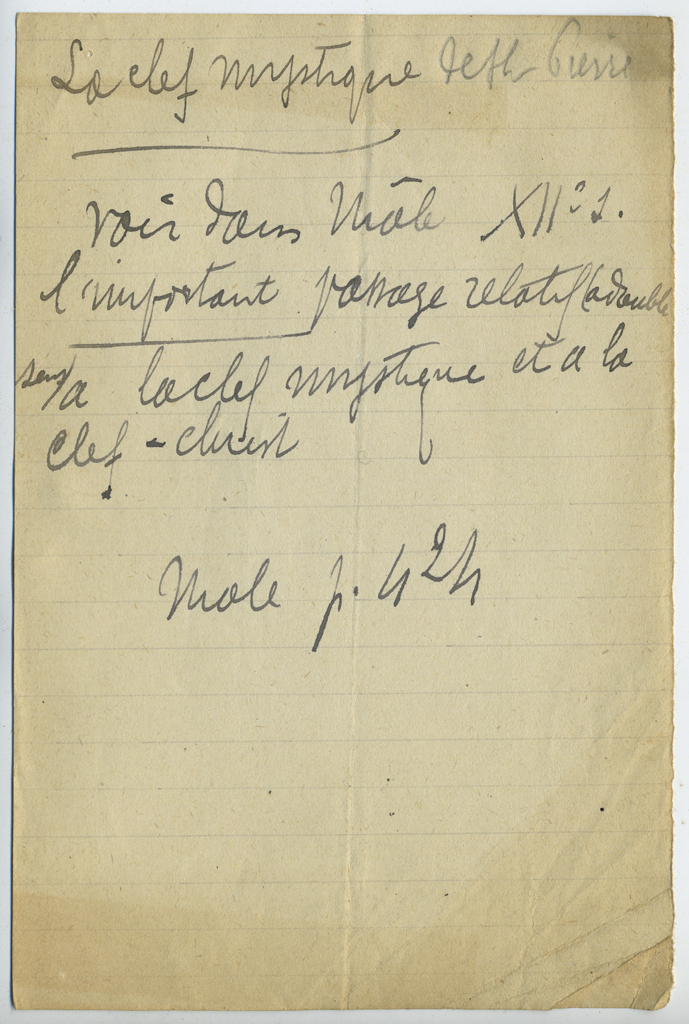 La clef mystique de St Pierre
voir dans Mâle XIIe s.
l'important passage relatif (à double
sens) a la clef mystique et a la
clef - christ
Male p. 424